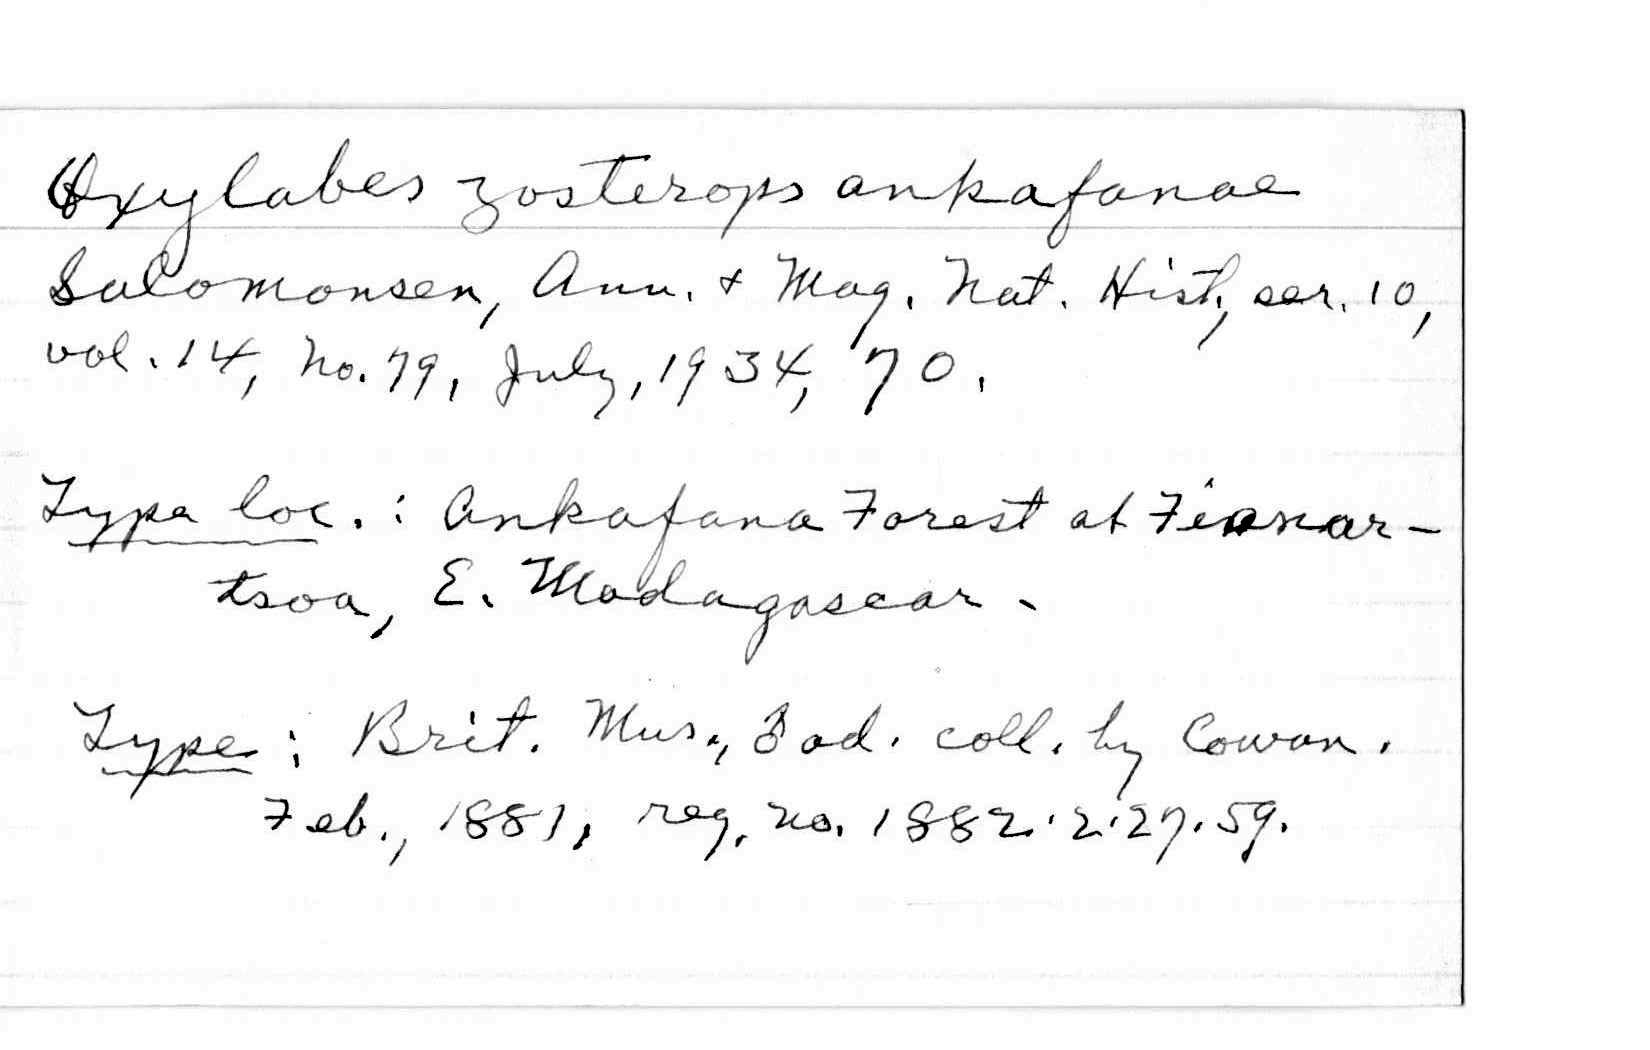 Oxylabes zosterops ankafanae
Salomonsen, Ann. + Mag. Nat. Hist., ser. 10,
vol. 14, no. 79, July, 1934, 70.
Type loc. : Ankafana Forest at Fianar-
tsoa, E. Madagascar.
Type : Brit. Mus., ad. coll. by Cowan.
Feb., 1881, reg. no. 1882.2.27.59.